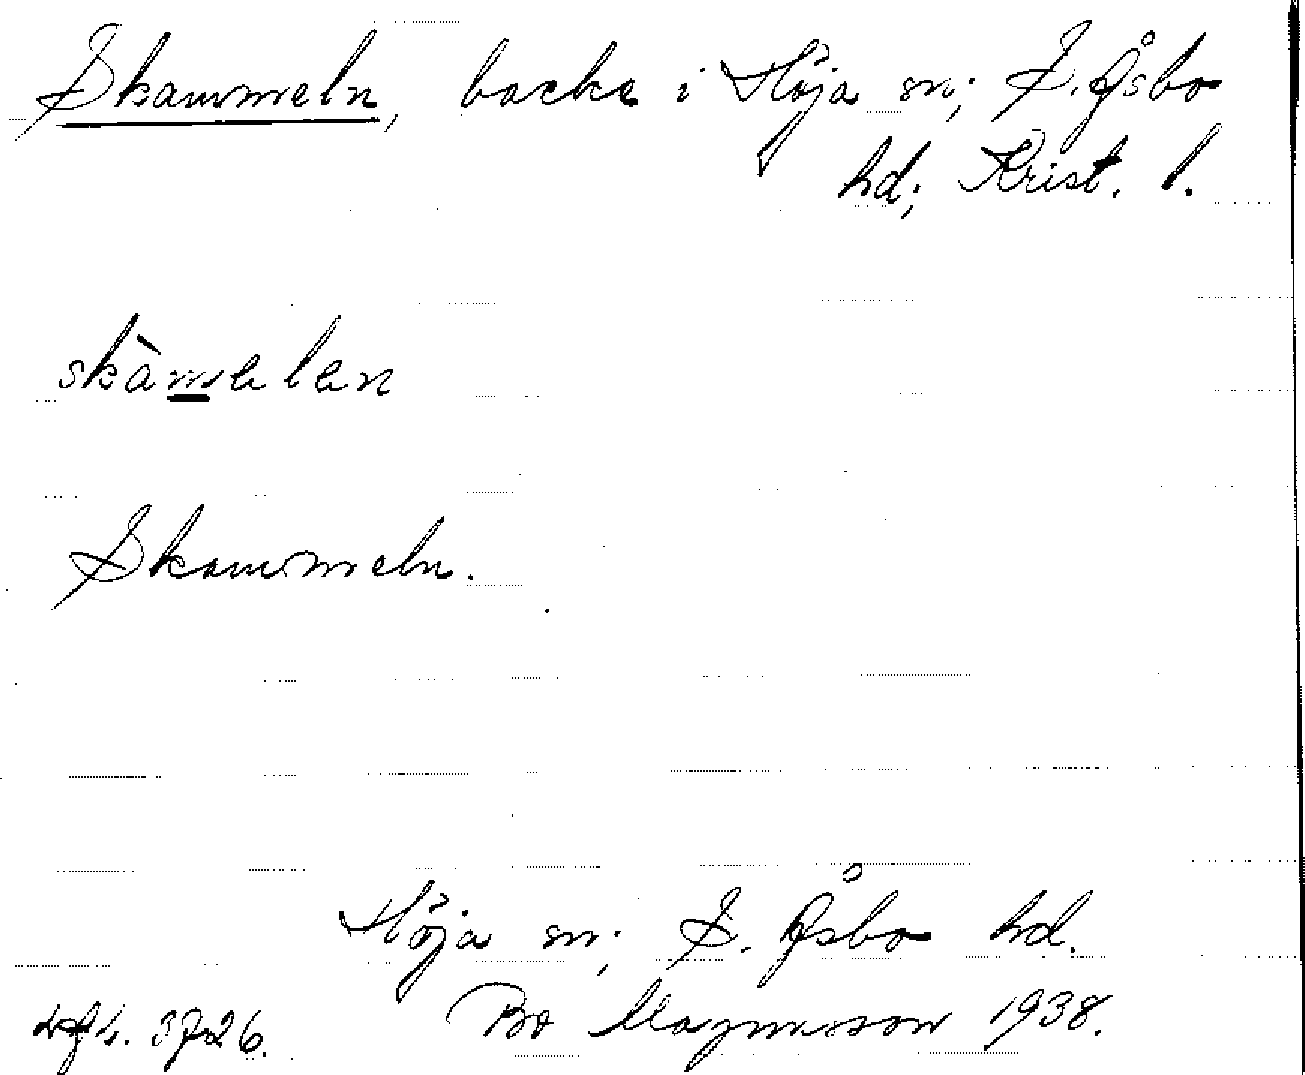 Skammeln, backe i Höja sn; S. Åsbo
hd; Krist. l.
skàmelen
Skammeln.
Höja sn; S. Åsbo hd.
Bo Magnusson 1938.